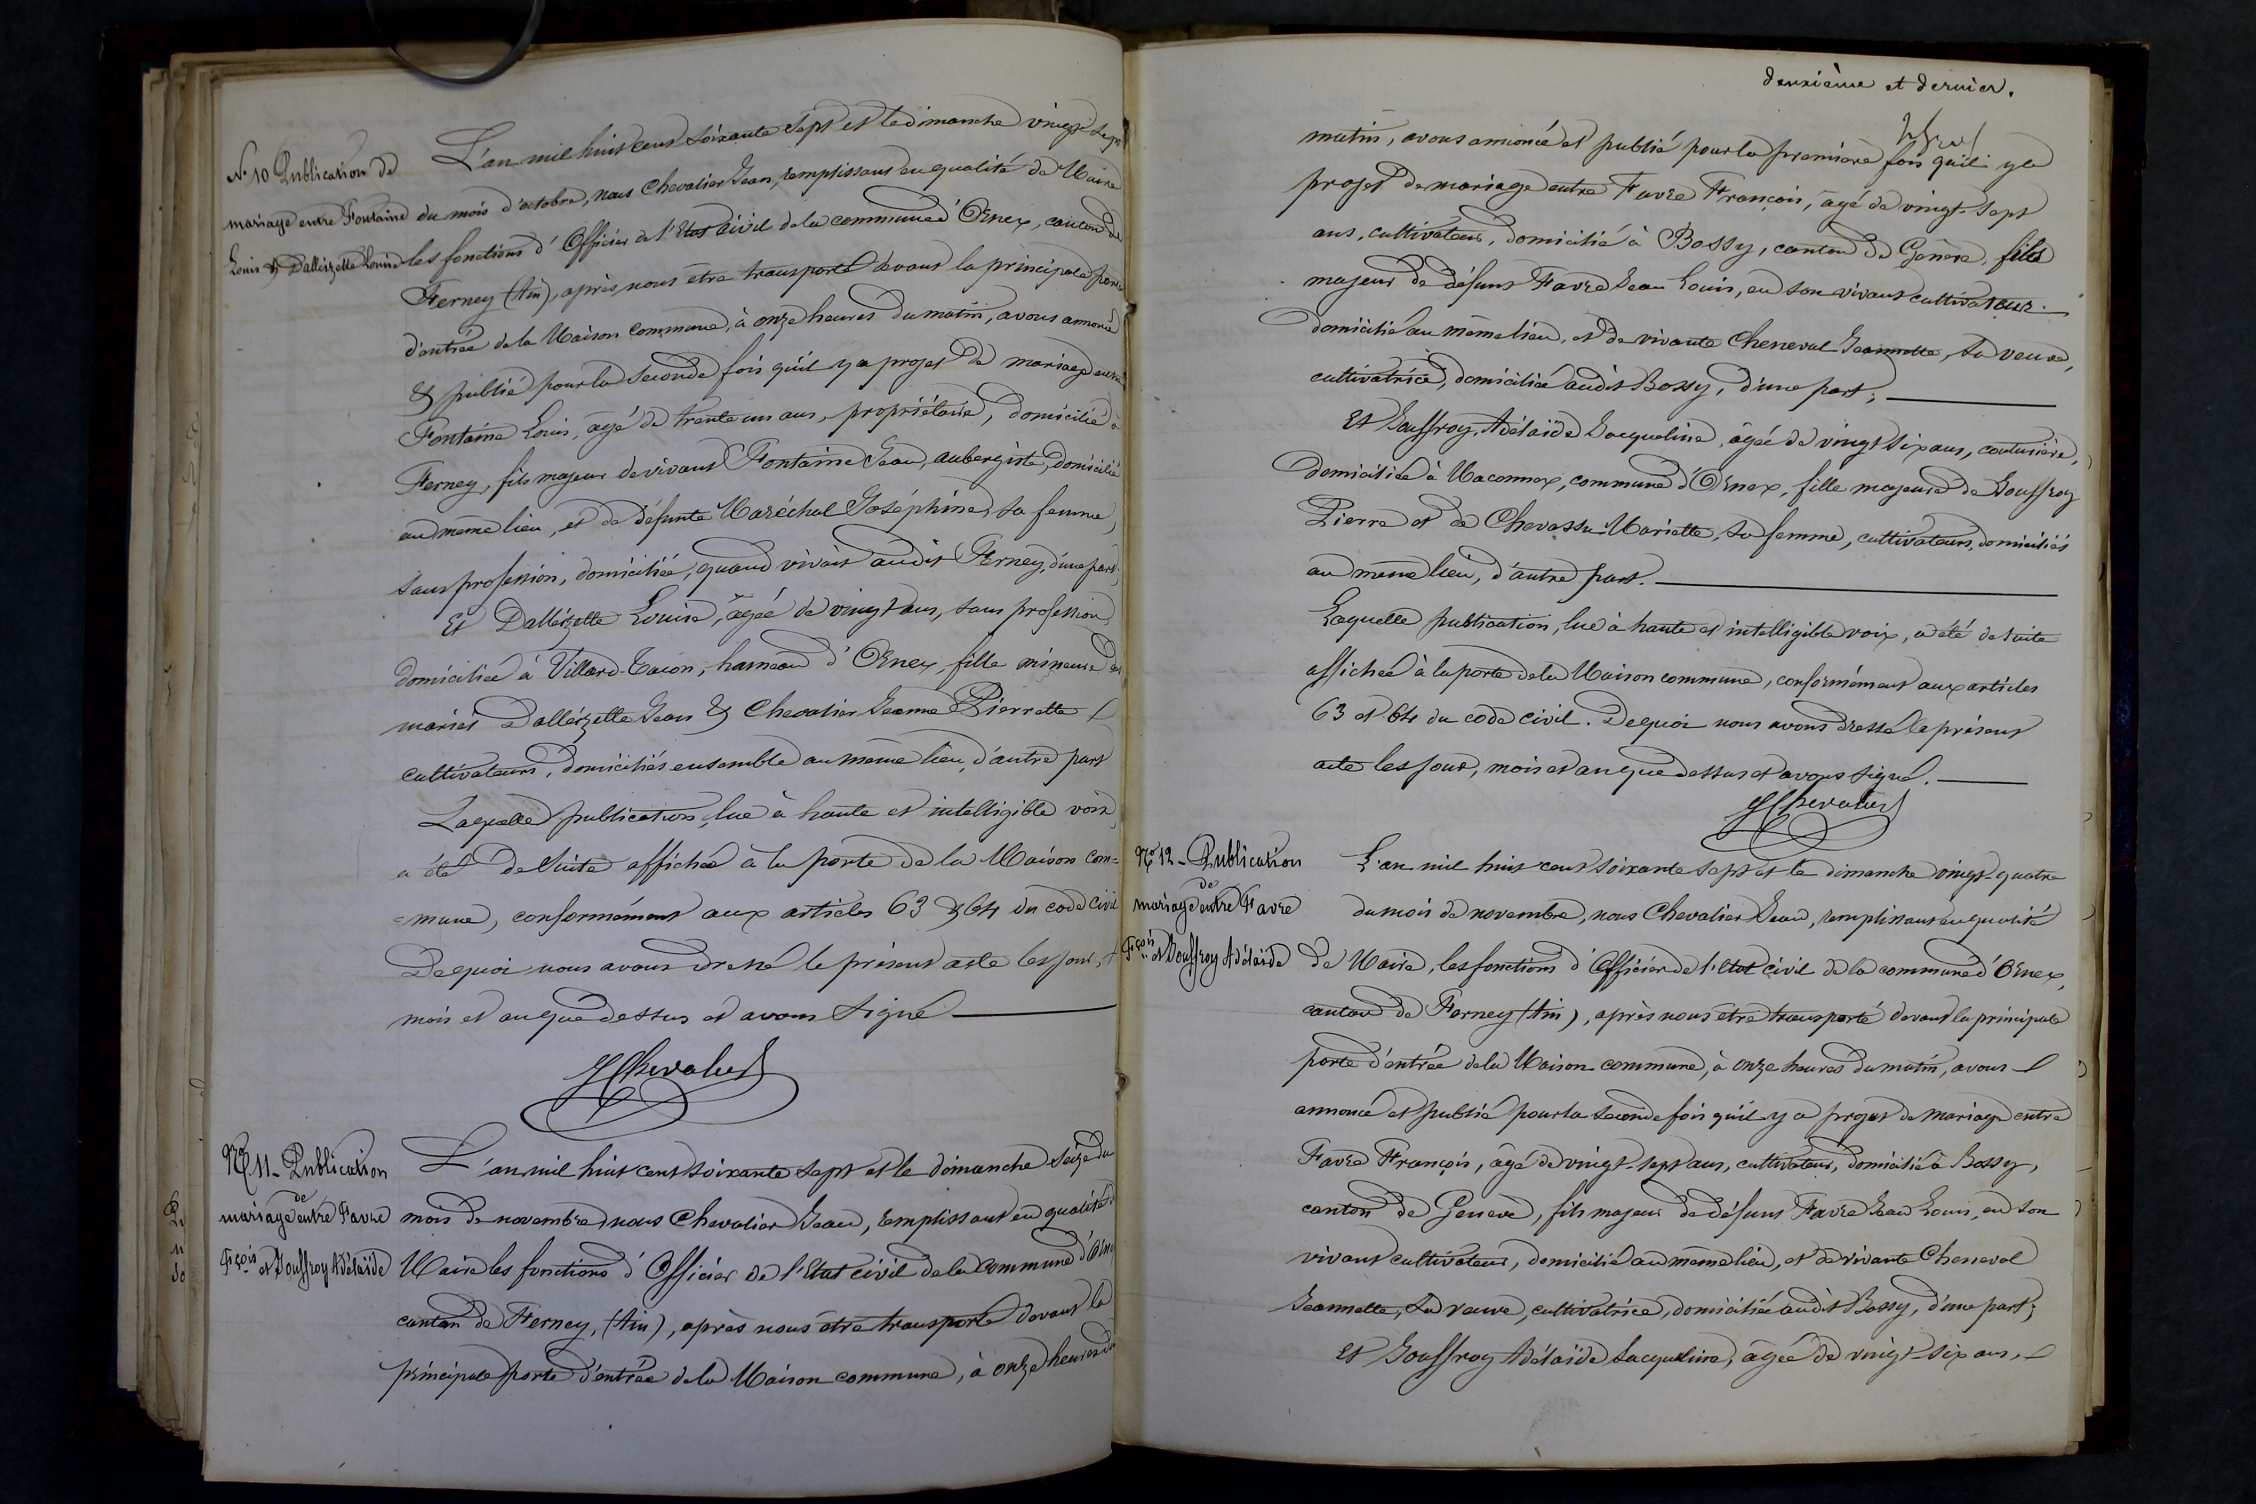 N° 10 Publication de
mariage entre Fontaine
Louis & Dallézette Louise
L'an mil huit cent soixante sept et le dimanche vingt sept
du mois d'octobre, nous Chevalier Jean, remplissant en qualité de Maire
les fonctions d'Officier de l'Etat civil de la commune d'Ornex, canton de
Ferney (Ain), après nous être transporté devant la principale porte
d'entrée de la Maison commune, à onze heures du matin, avons annoncé
& publié pour la seconde fois qu'il y a projet de mariage entre
Fontaine Louis, âgé de trente un ans, propriétaire, domicilié à
Ferney, fils majeur de vivant Fontaine Jean, aubergiste, domicilié
au même lieu, et de défunte Maréchal Joséphine, sa femme,
sans profession, domiciliée, quand vivait audit Ferney, d'une part;
Et Dallézette Louise, âgée de vingt ans, sans profession
domiciliée à Villard-Tacon, hameau d'Ornex, fille mineure des
mariés Dallézette Jean & Chevalier Jeanne Pierrette
cultivateurs, domiciliés ensemble au même lieu, d'autre part
Laquelle publication, lue à haute et intelligible voix,
a été de suite affichée à la porte de la Maison com=
=mune, conformément aux articles 63 & 64 du code civil
De quoi nous avons dressé le présent acte les jour,
mois et an que dessus et avons signé
J Chevalier
N° 11 - Publication
de
mariage entre Favre
Fçois et Gouffroy Adélaïde
L'an mil huit cent soixante sept et le dimanche seize du
mois de novembre, nous Chevalier Jean, remplissant en qualité de
Maire les fonctions d'Officier de l'Etat civil de la commune d'Ornex
canton de Ferney, (Ain), après nous être transporté devant la
principale porte d'entrée de la Maison commune, à onze heures du
deuxième et dernier.
matin, avons annoncé et publié pour la première fois qu'il y a
projet de mariage entre Favre François, âgé de vingt-sept
ans, cultivateur, domicilié à Bossy, canton de Genève, fils
majeur de défunt Favre Jean Louis, en son vivant cultivateur
domicilié au même lieu, et de vivante Cheneval Jeannette, sa veuve,
cultivatrice, domiciliée audit Bossy, d'une part;
Et Gouffroy, Adélaïde Jacqueline, âgée de vingt six ans, couturière,
domiciliée à Maconnex, commune d'Ornex, fille majeure de Gouffroy
Pierre et de Chevassu Mariette, sa femme, cultivateurs, domiciliés
au même lieu, d'autre part.
Laquelle publication, lue à haute et intelligible voix, a été de suite
affichée à la porte de la Maison commune, conformément aux articles
63 et 64 du code civil. De quoi nous avons dressé le présent
acte les jour, mois et an que dessus et avons signé.
J Chevalier
N° 12 - Publication
de
mariage entre Favre
Fçois et Gouffroy Adélaïde
L'an mil huit cent soixante sept et le dimanche vingt-quatre
du mois de novembre, nous Chevalier Jean, remplissant en qualité
de Maire, les fonctions d'Officier de l'Etat civil de la commune d'Ornex,
canton de Ferney (Ain), après nous être transporté devant la principale
porte d'entrée de la Maison commune, à onze heures du matin, avons
annoncé et publié pour la seconde fois qu'il y a projet de mariage entre
Favre François, âgé de vingt-sept ans, cultivateur, domicilié à Bossy,
canton de Genève, fils majeur de défunt Favre Jean Louis, en son
vivant cultivateur, domicilié au même lieu, et de vivante Cheneval
Jeannette, sa veuve, cultivatrice, domiciliée audit Bossy, d'une part;
Et Gouffroy Adélaïde Jacqueline, âgée de vingt-six ans,